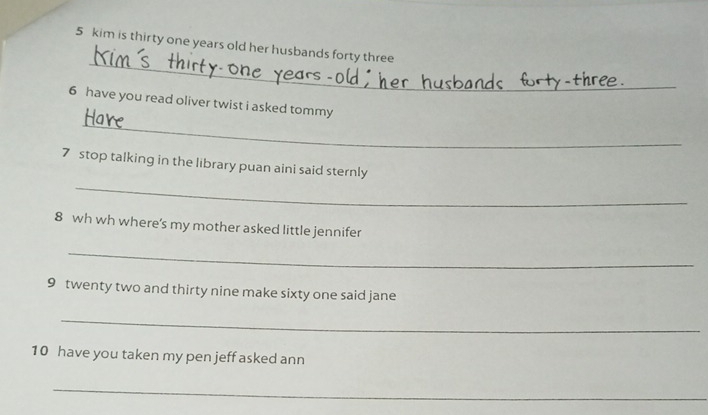 5 kim is thirty one years old her husbands forty three
Kim's thirty-one years-old; her husbands forty-three.
6 have you read oliver twist i asked tommy
Have
7 stop talking in the library puan aini said sternly
8 wh wh where's my mother asked little jennifer
9 twenty two and thirty nine make sixty one said jane
10 have you taken my pen jeff asked ann